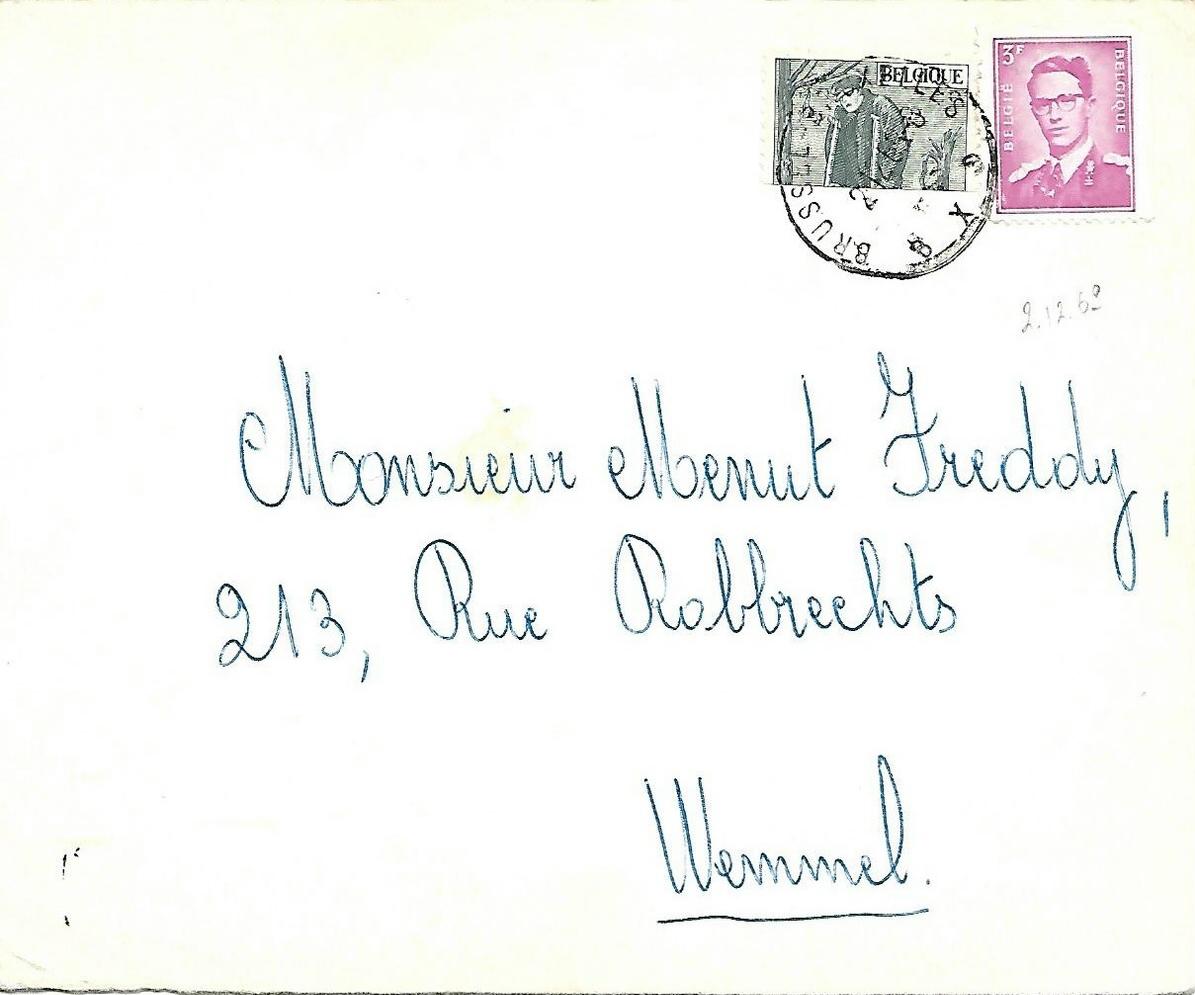 BELGIQUE
3F
BELGIË
BELGIQUE
BRUSSEL
X
2.12.62
Monsieur Menut Freddy,
213, Rue Robbrechts
Wemmel.